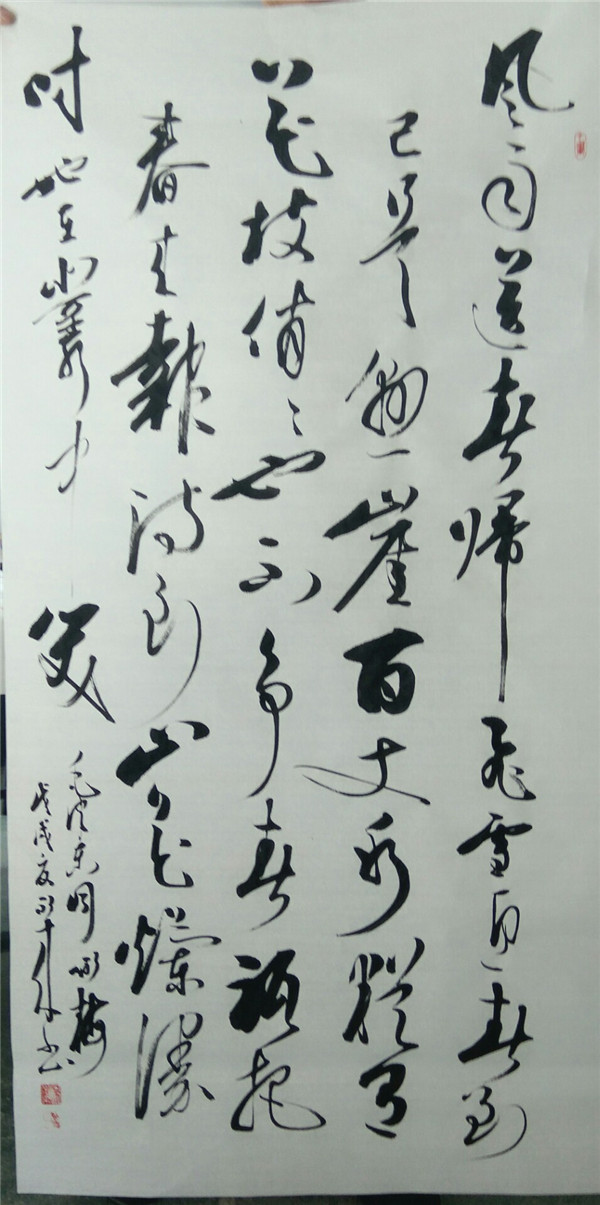 风雨送春帰飞雪迎春到
已是悬崖百丈冰犹有
花枝俏々也不争春祗把
春来報待到山花爛漫
时她在丛中笑
毛泽东词咏梅
戊戌夏 书